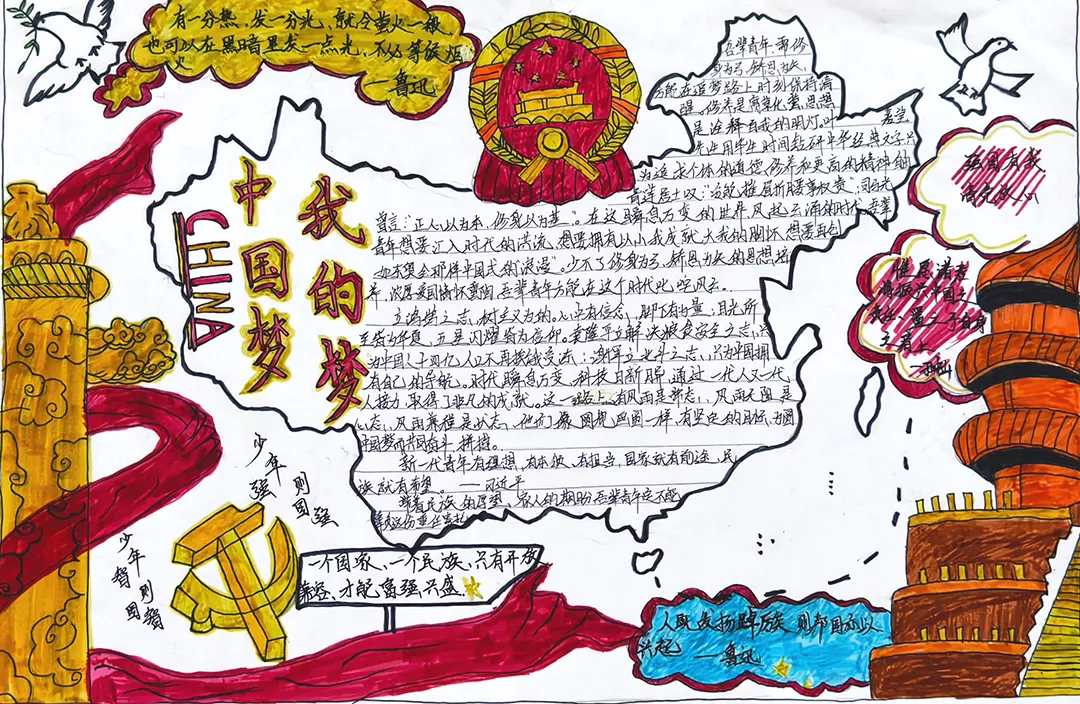 有一分热，发一分光，就令萤火一般
也可以在黑暗里发一点光，不必等候炬
火
——鲁迅
中国梦
CHINA
我的梦
吾辈青年，需修
身为弓，矫思为矢，
方能在追梦路上时刻保持清
醒。修养是商变化萤，思想
是诠释自我的明灯。
先生用毕生时间钻研中华经典文字只
为追求个体的道德修养和更高的精神纳
青莲居士叹："安能摧眉折腰事权贵"；
箴言："正人以为本，修身以为基"。在这瞬息万变的世界风起云涌的时代吾辈
青年想要汇入时代的洪流，想要拥有以小我成就大我的胸怀，想要再创
如奥会那样中国式的浪漫"。少不了修身为弓，矫思为矢的思想培
养，浓厚爱国情怀熏陶，吾辈青年方能在这个时代叱咤风云。
立鸿鹄之志，树必为的。心中有信念，脚下有力量，目光所
至皆为华夏，五星闪耀皆为信仰。袁隆平立解决粮食安全之志，只
为中国十四亿人口不再挨饿受冻；谢军立北斗之志，只为中国拥
有自己的导航。时代瞬息万变，科技日新月异，通过一代人又一代
人接力，取得了非凡的成就。这一路上，有风雨是常态，风雨无阻是
心态，风雨兼程是状态，他们像圆规画圆一样，有坚定的目标，为圆
中国梦而共同奋斗拼搏。
新一代青年有理想，有本领，有担当，国家就有前途，民
族就有希望。——习近平
带着民族的厚望、家人的期盼吾辈青年定不能
辜负这份重任
强国有我
请党放心
惟愿诸君
将振兴中国之
责任，置之于自身
之肩上
——孙中山
少年强
则国强
少年智
则国智
一个国家，一个民族，只有开放
兼容，才能富强兴盛
人既发扬踔厉矣，则邦国亦以
兴起
——鲁迅